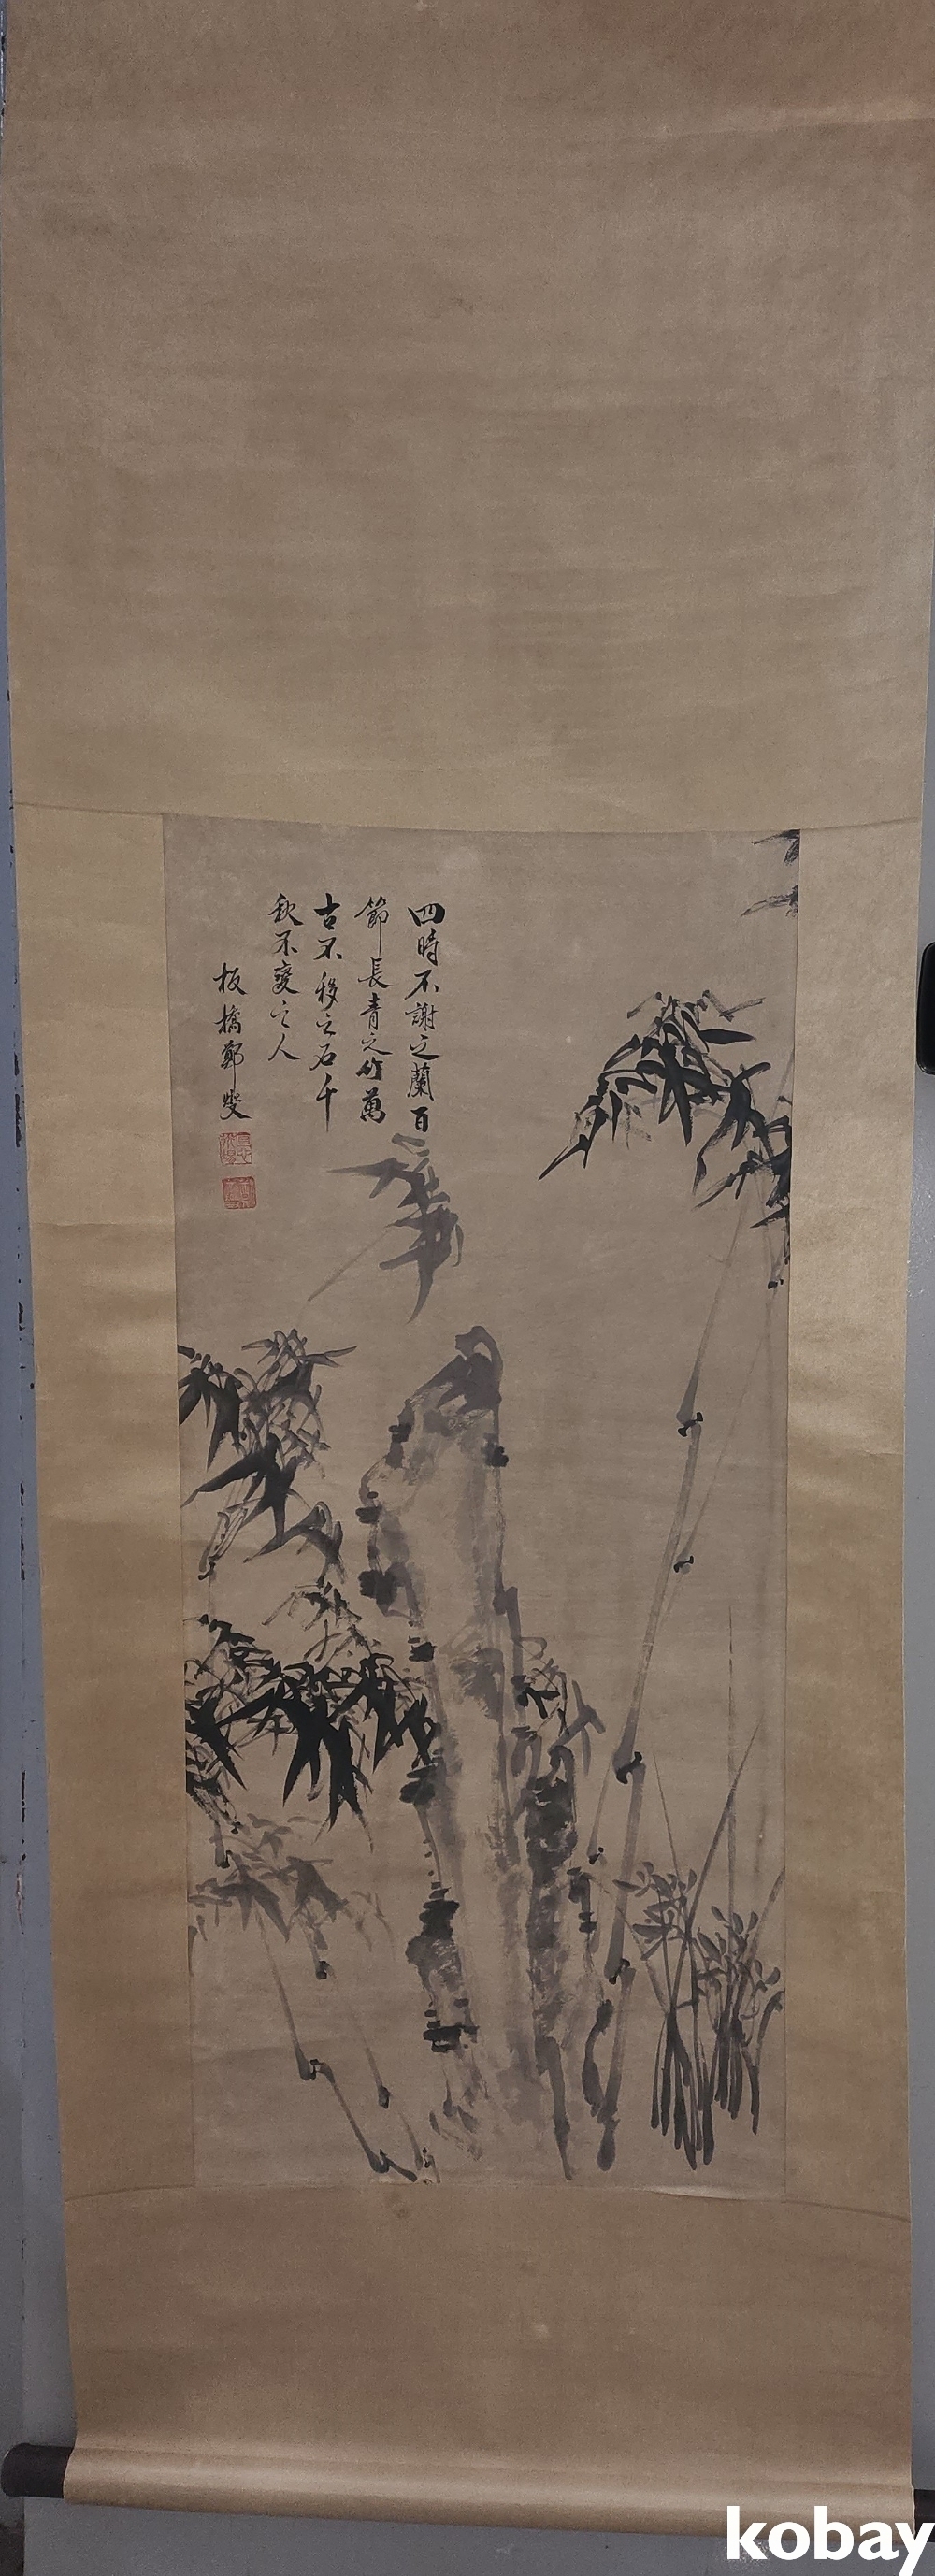 四時不謝之蘭百
節長青之竹萬
古不移之石千
秋不變之人
板橋鄭燮
kobay